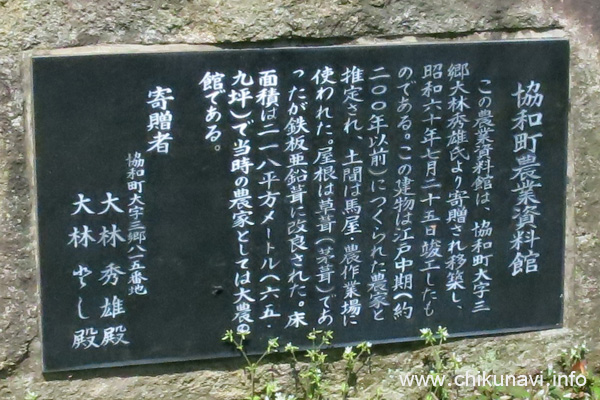 協和町農業資料館
この農業資料館は、協和町大字三
郷大林秀雄氏より寄贈され移築し、
昭和六十年七月二十五日竣工したも
のである。この建物は江戸中期（約
二〇〇年以前）につくられた農家と
推定され、土間は馬屋、農作業場に
使われた。屋根は草葺（茅葺）であ
ったが鉄板亜鉛葺に改良された。床
面積は二一八平方メートル（六五・
九坪）で当時の農家としては大農の
館である。
寄贈者
協和町大字三郷八一五番地
大林秀雄殿
大林とし殿
www.chikunavi.info